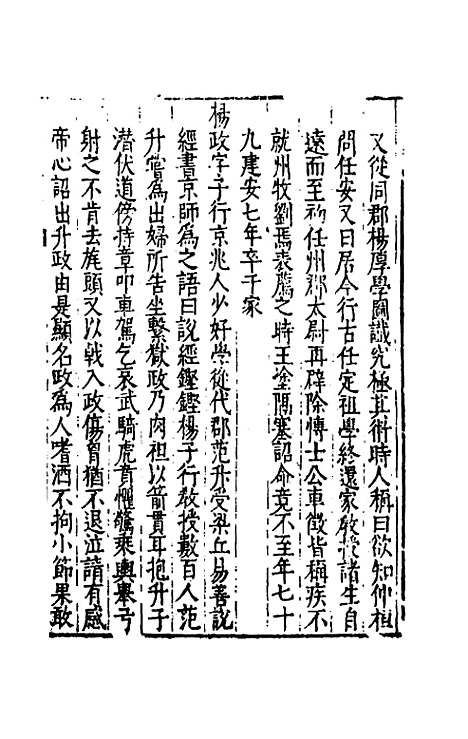 又從同郡楊厚學圖讖究極其術時人稱曰欲知仲桓
問任安又曰居今行古任定祖學終還家教授諸生自
遠而至初任州郡太尉再辟除博士公車徵皆稱疾不
就州牧劉焉表薦之時王塗隔塞詔命竟不至年七十
九建安七年卒于家
楊政字子行京兆人少好學從代郡范升受梁丘易善說
經書京師為之語曰說經鏗鏗楊子行教授數百人范
升嘗為出婦所告坐繫獄政乃肉袒以箭貫耳抱升子
潛伏道傍持章叩車駕乞哀武騎虎賁懼驚乘輿舉弓
射之不肯去旄頭又以戟入政傷胷猶不退泣請有感
帝心詔出升政由是顯名政為人嗜酒不拘小節果敢